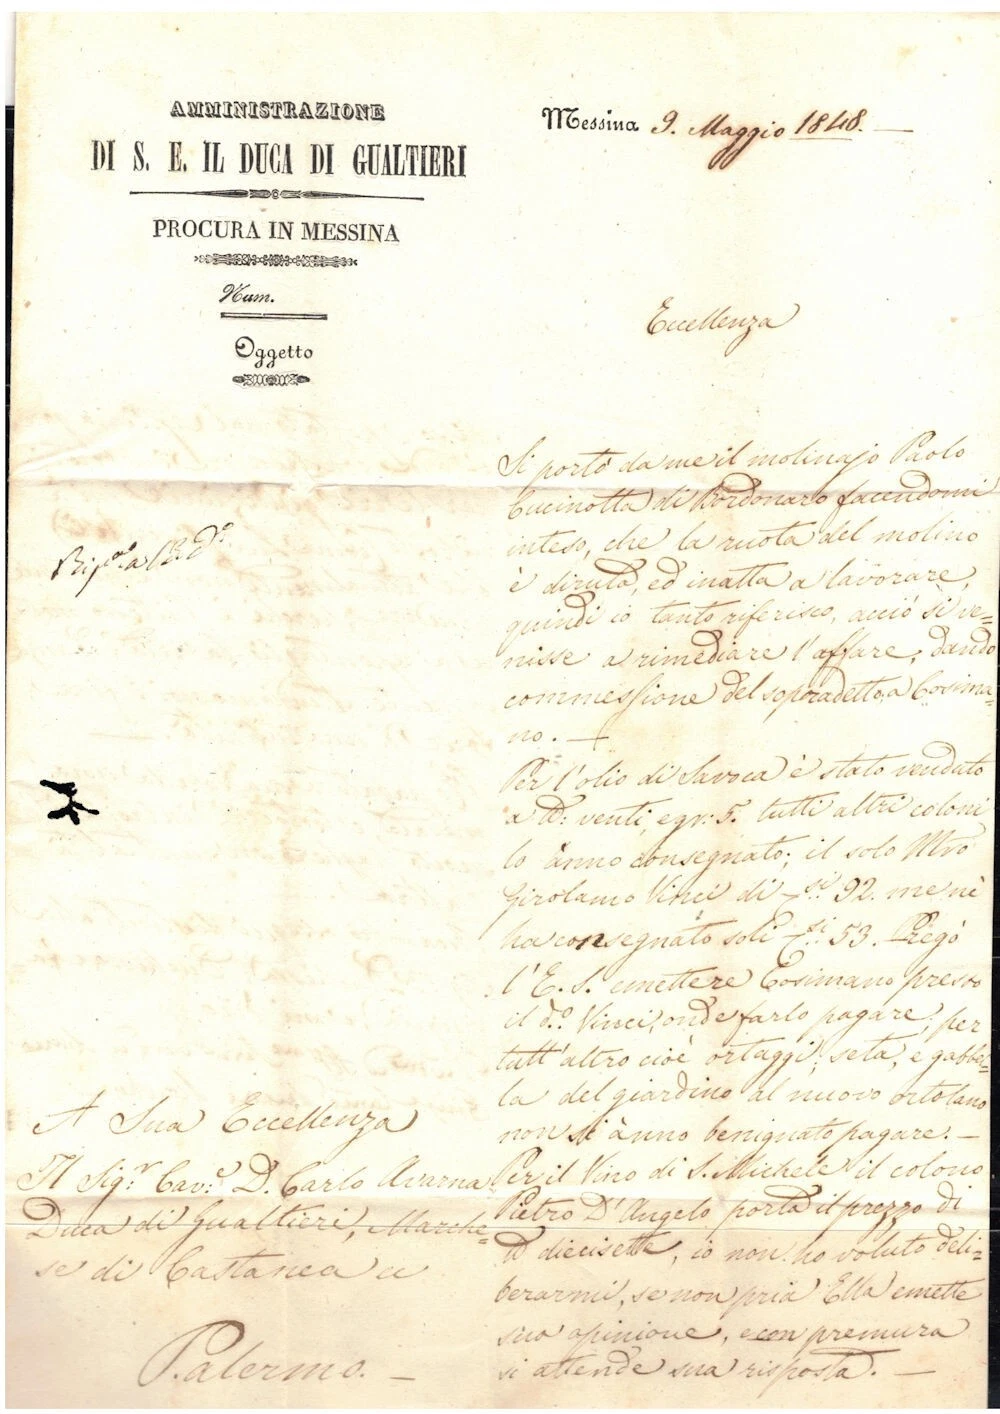 AMMINISTRAZIONE
DI S. E. IL DUCA DI GUALTIERI
PROCURA IN MESSINA
Num.
Oggetto
Messina 9. Maggio 1848. —
Eccellenza
Si portò da me il molinajo Paolo
Cucinotta di Bordonaro facendomi
inteso, che la ruota del molino
è diruta, ed inatta a lavorare,
quindi io tanto riferisco, acciò si ve=
nisse a rimediare l'affare, dando
commessione del sopradetto a Cosima=
no. —
Per l'olio di Savoca è stato venduto
a D: venti, e gr: 5. tutti altri coloni
lo ànno consegnato; il solo Mro
Girolamo Vinci di 92. me nè
ha consegnato soli 53. Pregò
l'E. S. emettere Cosimano presso
il do. Vinci, onde farlo pagare, per
tutt'altro cioè ortaggi, seta, e gabbel=
la del giardino al nuovo ortolano
non si ànno benignato pagare. —
Per il Vino di S. Michele il colono
Pietro D'Angelo portà il prezzo di
D diecisette, io non ho voluto deli=
berarmi, se non prià Ella emette
suo opinione, e con premura
si attende sua risposta. —
A Sua Eccellenza
Il Sigr. Cav:e D. Carlo Avarna
Duca di Gualtieri, Marche=
se di Castanea
Palermo. —